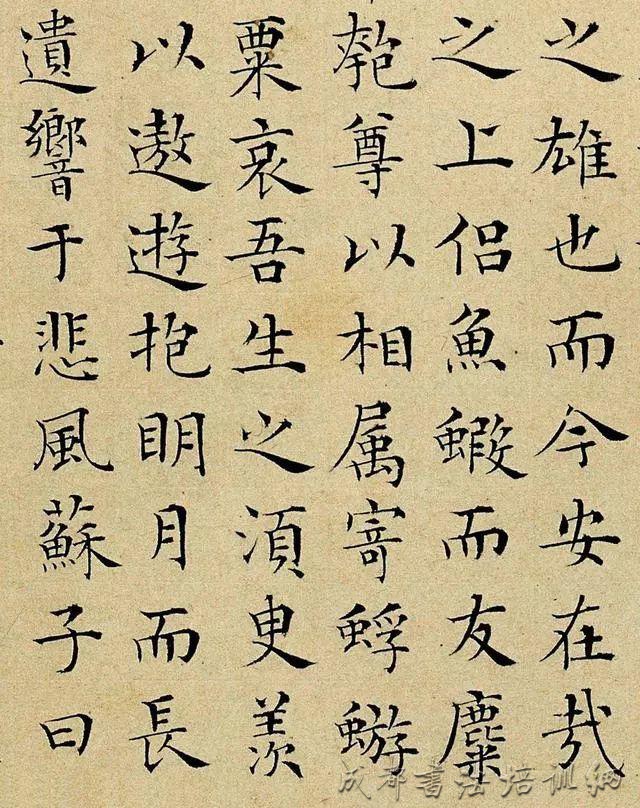 之雄也而今安在哉
之上侣魚蝦而友麋
匏尊以相属寄蜉蝣
粟哀吾生之湏臾羨
以遨遊抱明月而長
遺響于悲風蘇子曰
成都書法培訓網